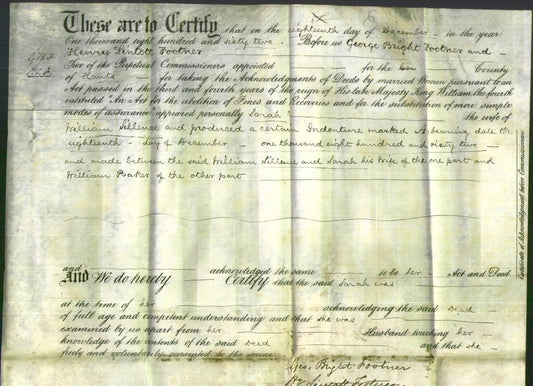 These are to Certify that on the eighteenth day of December in the year
One thousand eight hundred and sixty two Before us George Bright Footner and
Henry Footner
Two of the Perpetual Commissioners appointed for the County
of Hants for taking the Acknowledgments of Deeds by married Women pursuant to an
Act passed in the third and fourth years of the reign of His late Majesty King William the fourth
intituled "An Act for the abolition of Fines and Recoveries and for the substitution of more simple
modes of assurance appeared personally Sarah the wife of
William Sillence and produced a certain Indenture marked A bearing date the
eighteenth day of December one thousand eight hundred and sixty two
and made between the said William Sillence and Sarah his Wife of the one part and
William Baker of the other part
and acknowledged the same to be her Act and Deed
And We do hereby Certify that the said Sarah was
at the time of her acknowledging the said Deed
of full age and competent understanding and that she was
examined by us apart from her Husband touching her
knowledge of the contents of the said Deed and that she
freely and voluntarily consented to the same
Geo. Bright Footner
Certificate of Acknowledgment before Commissioners